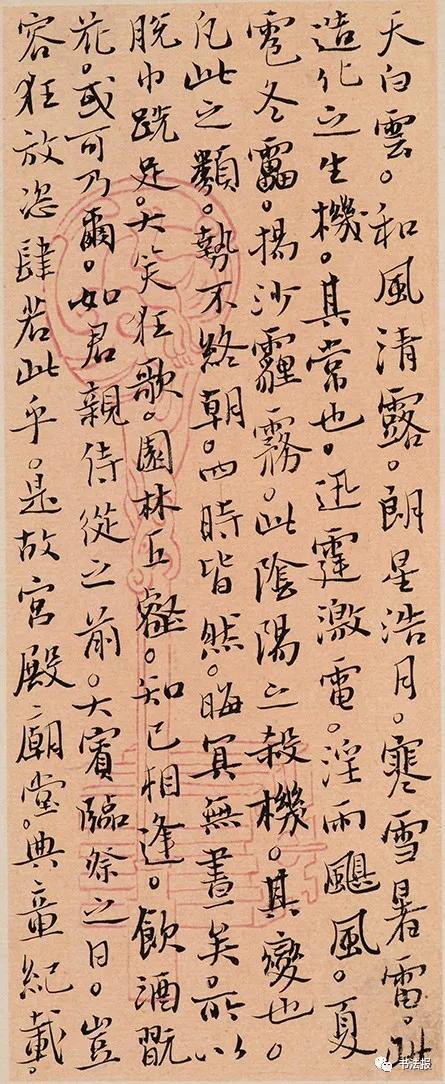 天白雲。和風清露。朗星浩月。寒雪暑雷。此
造化之生機。其常也。迅霆激電。淫雨颶風。夏
雹冬靁。揚沙霾霧。此陰陽之殺機。其變也。
凡此之類。勢不終朝。四時皆然。晦冥無晝矣。所以
脫巾跣足。大笑狂歌。園林丘壑。知己相逢。飲酒翫
花。或可乃爾。如君親侍從之前。大賓臨祭之日。豈
容狂放恣肆若此乎。是故宮殿廟堂。典章紀載。
书法报